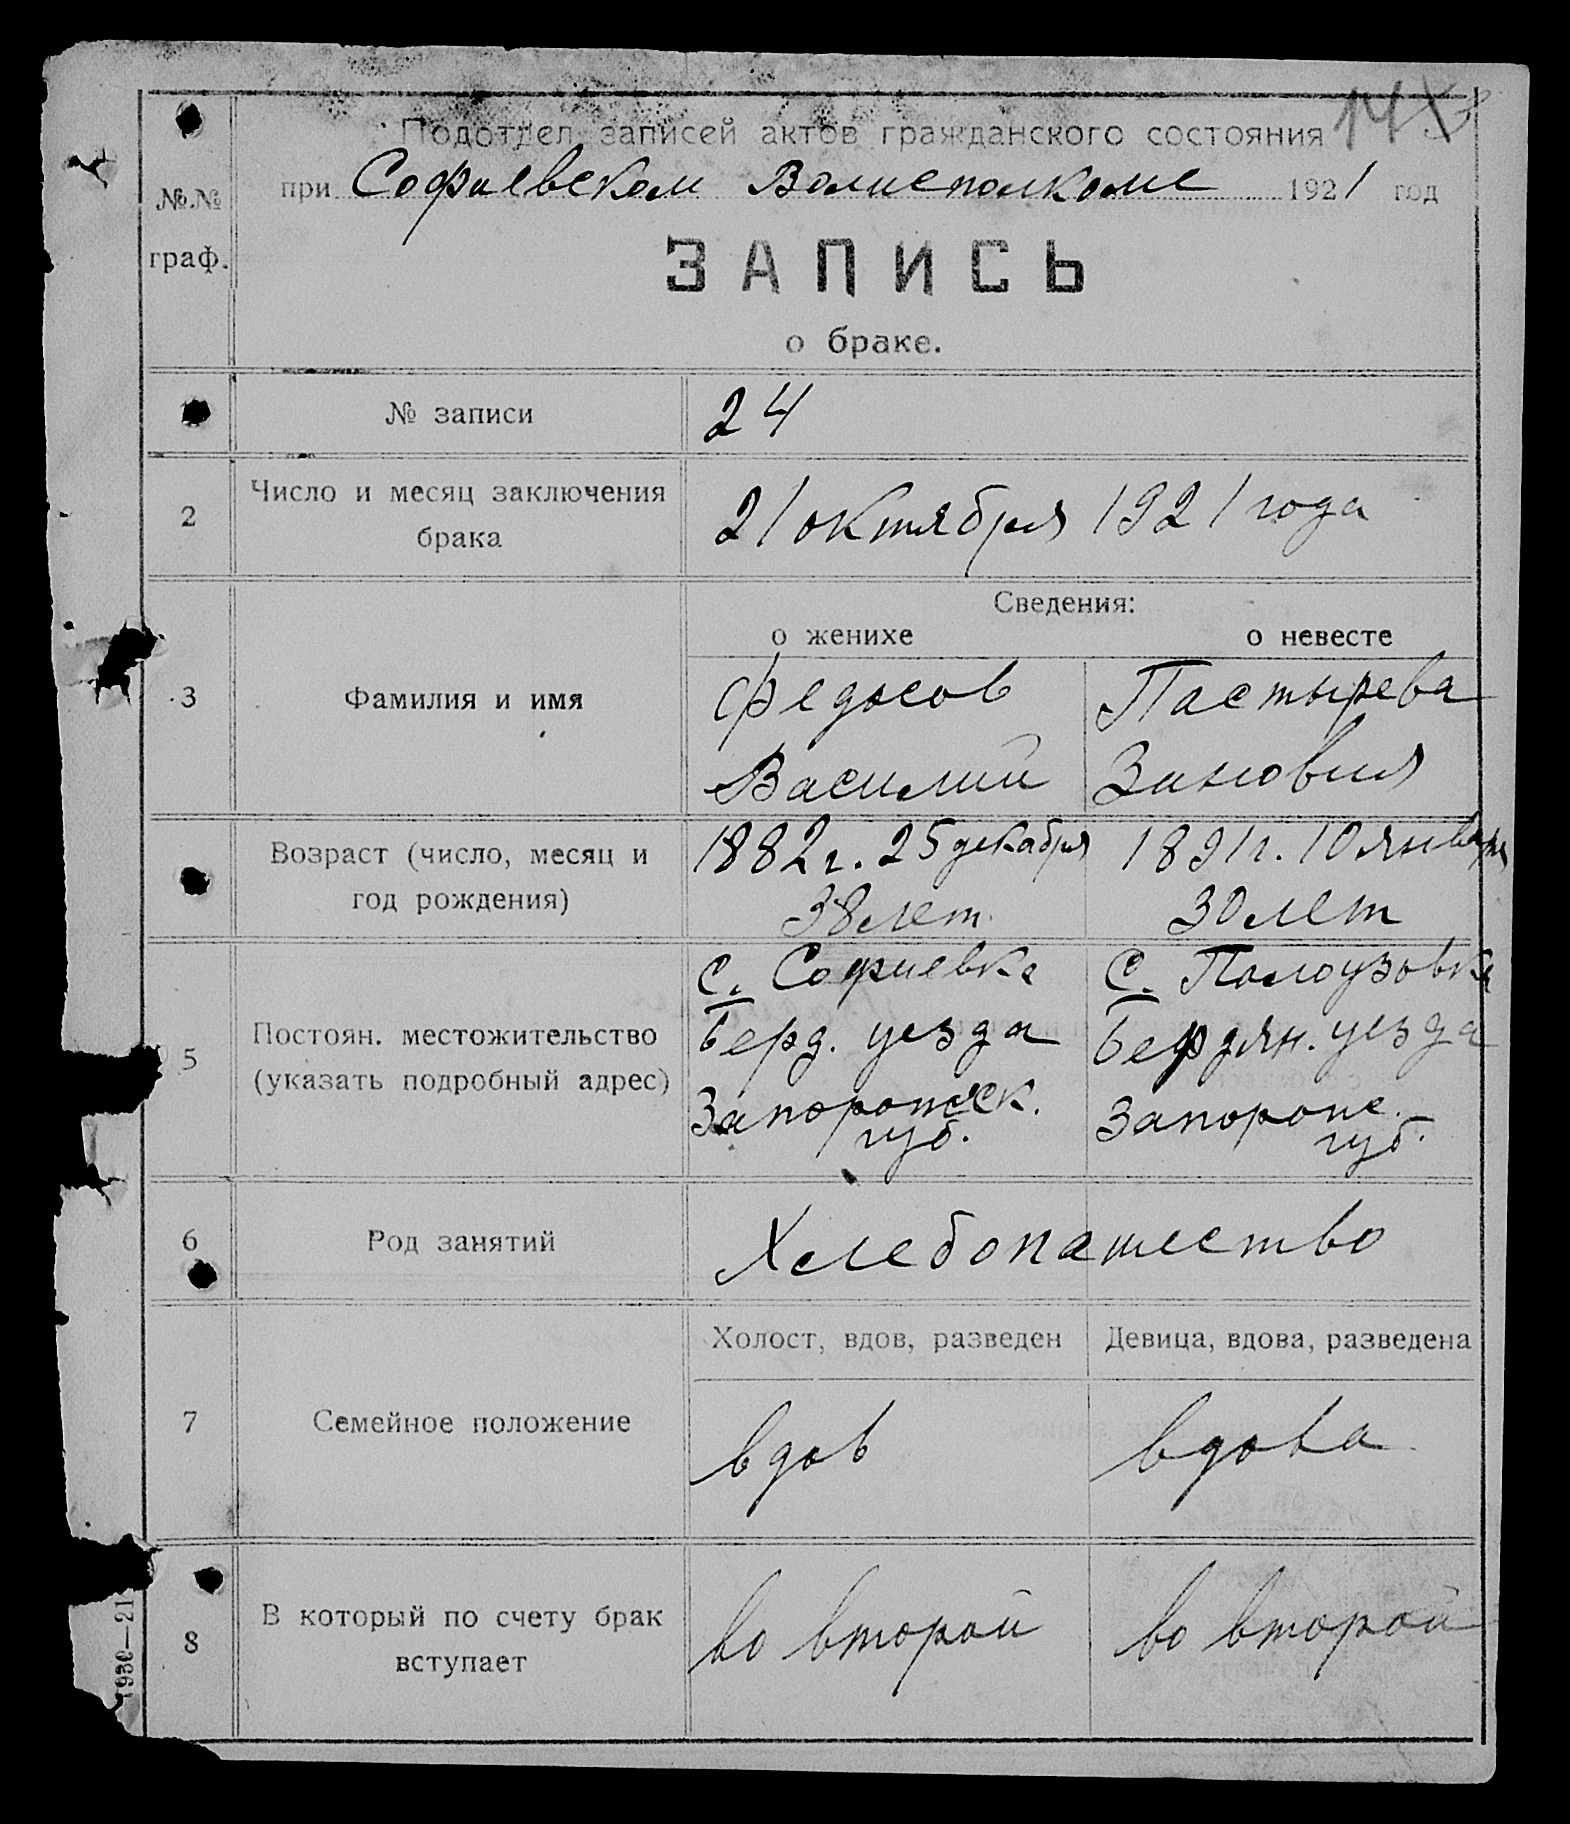 14
Подотдел записей актов гражданского состояния
при Софиевском Волисполкоме 1921 год
№№
граф.
ЗАПИСЬ
о браке.
№ записи 24
2 Число и месяц заключения
брака
21 октября 1921 года
Сведения:
о женихе о невесте
3 Фамилия и имя
Федосов Пастырева
Василий Зиновия
Возраст (число, месяц и
год рождения)
1882 г. 25 декабря 1891 г. 10 января
38 лет 30 лет
5 Постоян. местожительство
(указать подробный адрес)
С. Софиевка С. Полоузовка
Берд. уезда Бердян. уезда
Запорожск. Запорож.
губ. губ.
6 Род занятий Хлебопашество
Холост, вдов, разведен Девица, вдова, разведена
7 Семейное положение
вдов вдова
8 В который по счету брак
вступает
во второй во второй
1930—21